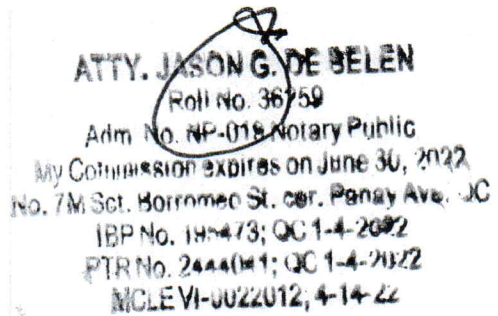 ATTY. JASON G. DE BELEN
Roll No. 36259
Adm No. NP-018 Notary Public
My Commission expires on June 30, 2022
No. 7M Sct. Borromeo St. cor. Panay Ave. QC
IBP No. QC 1-4-2022
PTR No. QC 1-4-2022
MCLE VI-0022012; 4-14-22